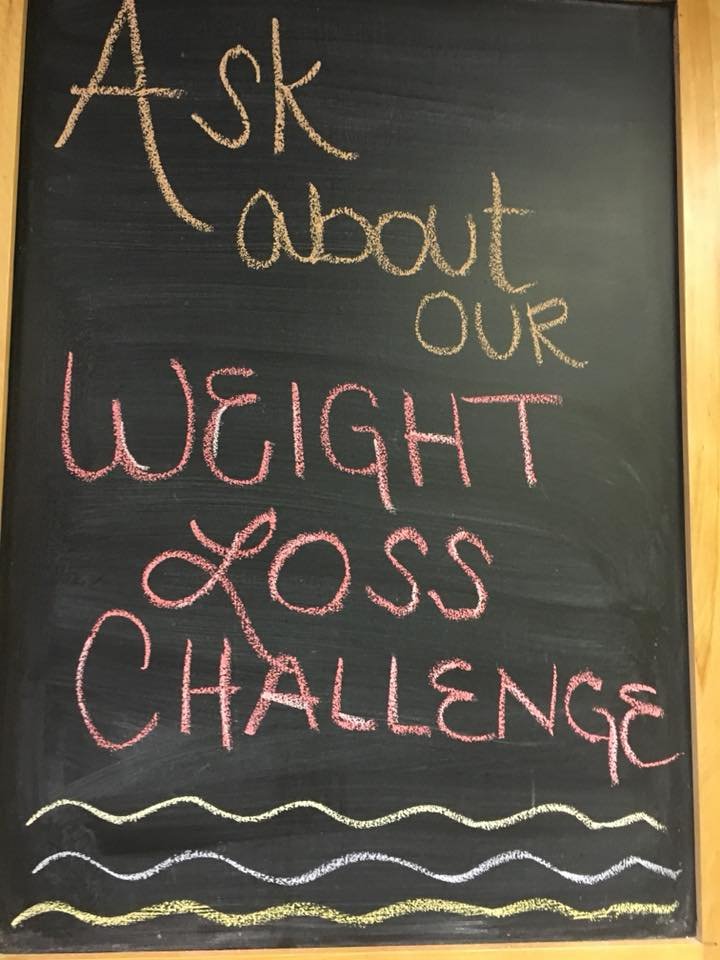 Ask
about
OUR
WEIGHT
LOSS
CHALLENGE